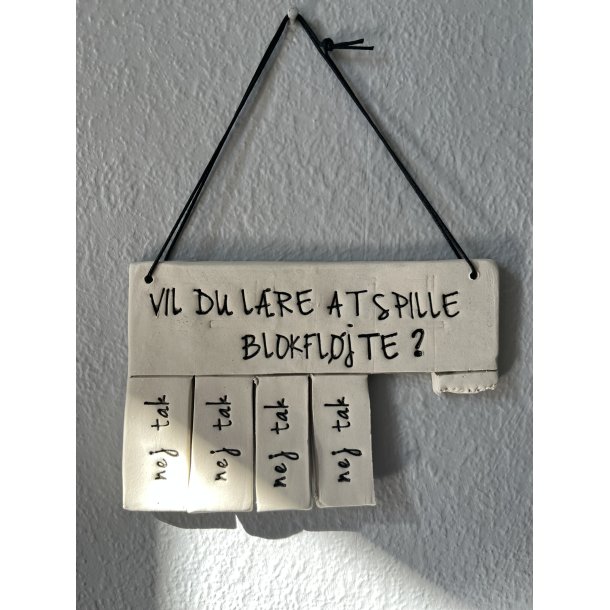 VIL DU LÆRE AT SPILLE
BLOKFLØJTE ?
nej tak
nej tak
nej tak
nej tak